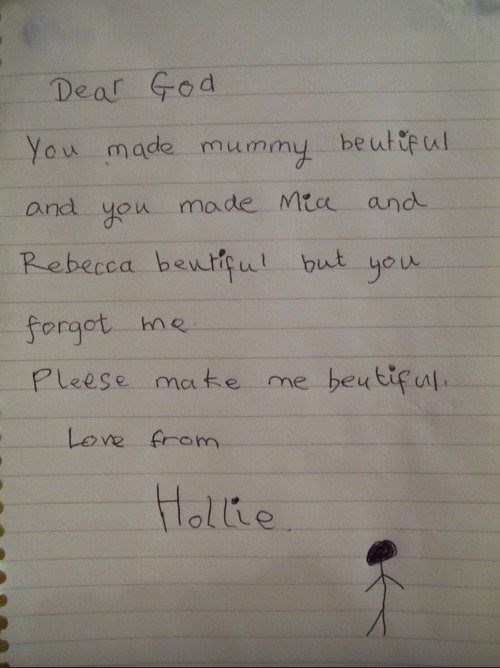 Dear God
You made mummy beutiful
and you made Mia and
Rebecca beutiful but you
forgot me.
Pleese make me beutiful.
Love from
Hollie.